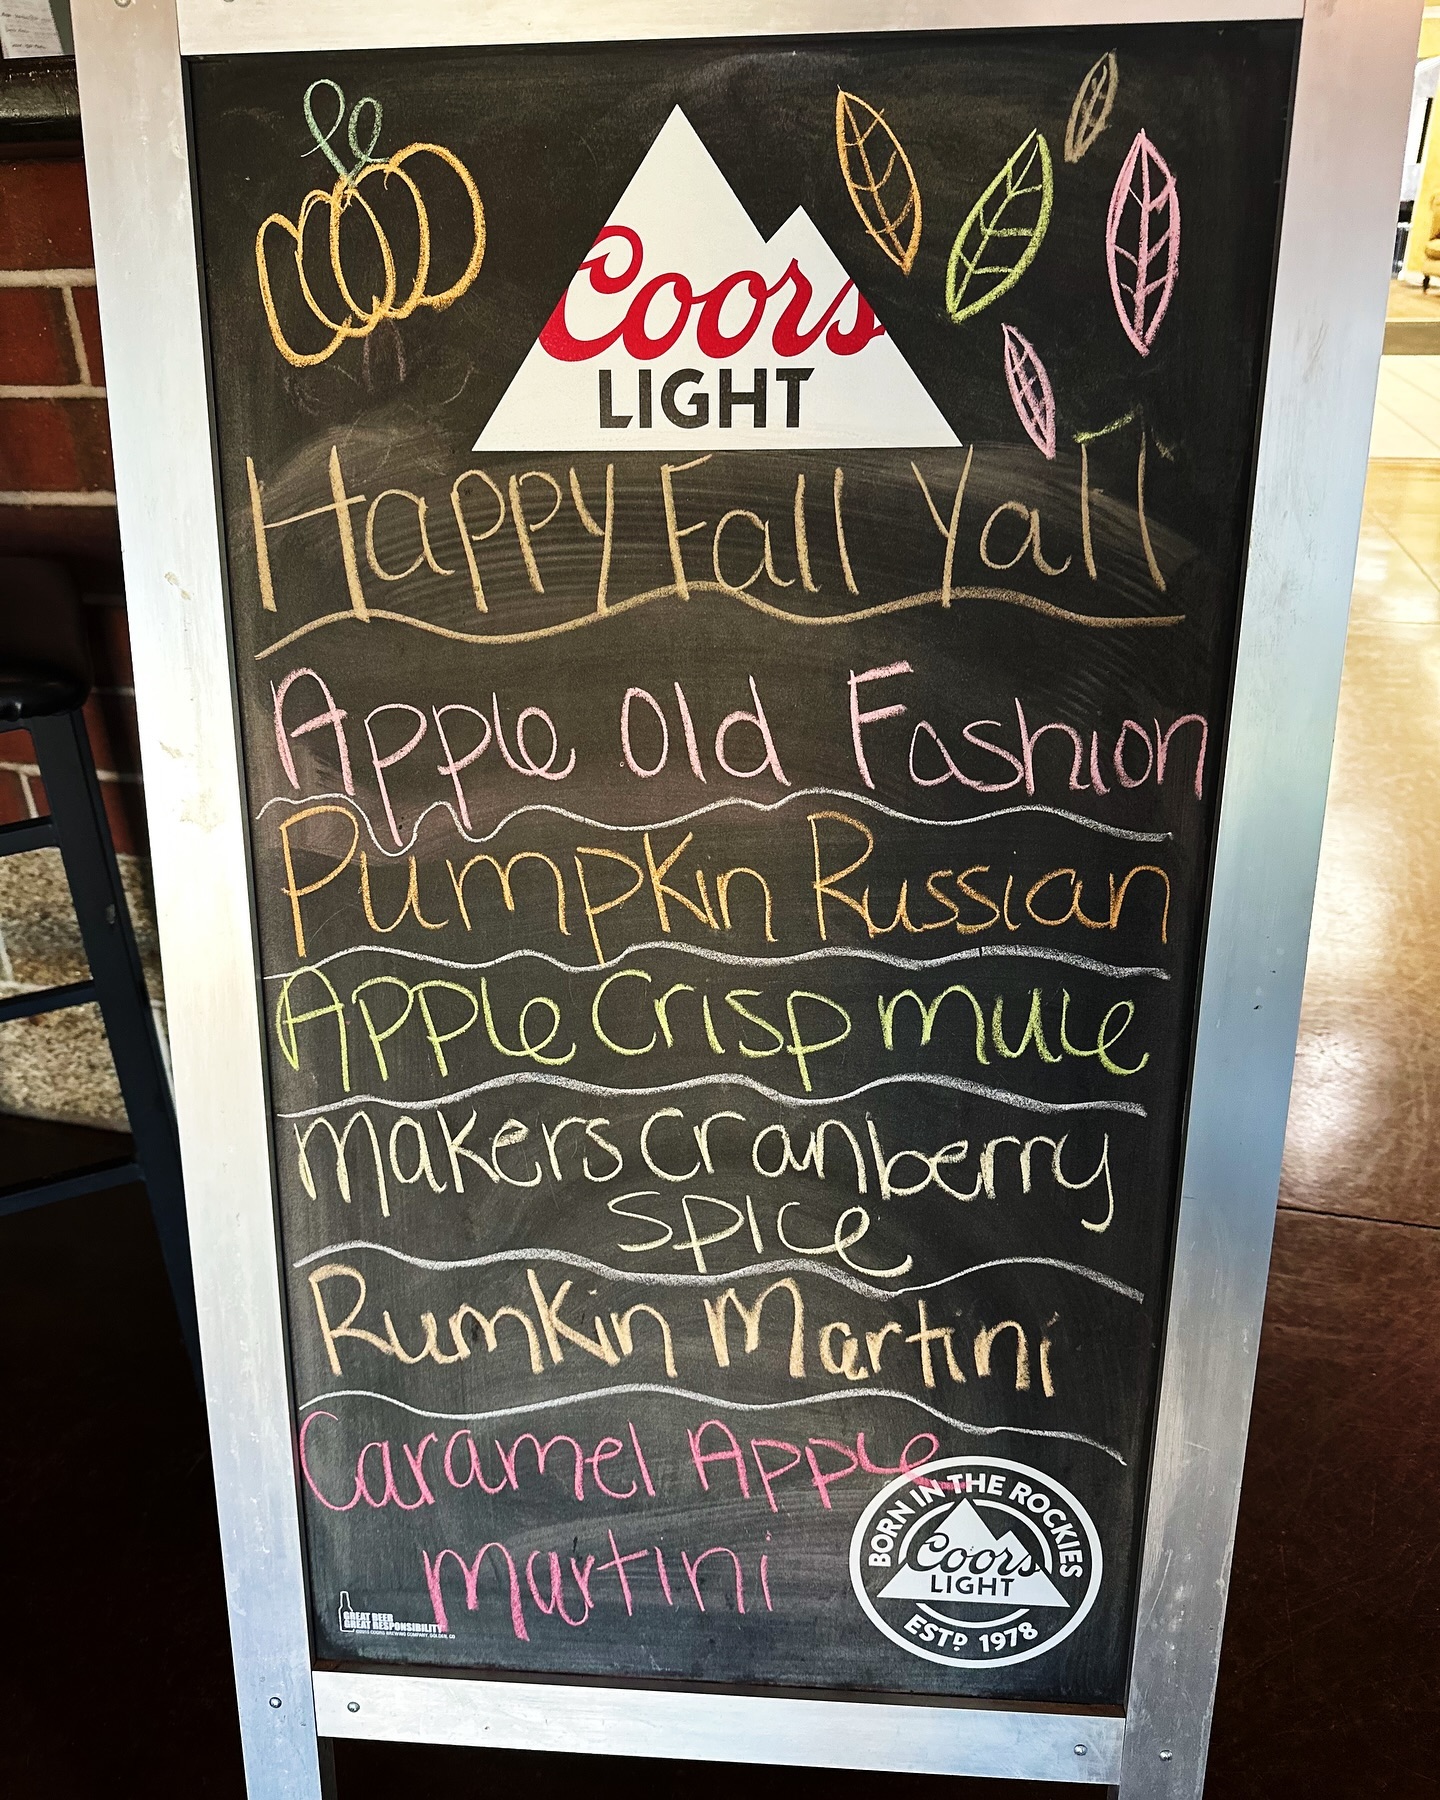 Coors
LIGHT
Happy Fall Ya'll
Apple Old Fashion
Pumpkin Russian
Apple Crisp mule
makers cranberry
spice
Rumkin Martini
Caramel Apple
martini
BORN IN THE ROCKIES
Coors
LIGHT
ESTD 1978
GREAT BEER
GREAT RESPONSIBILITY